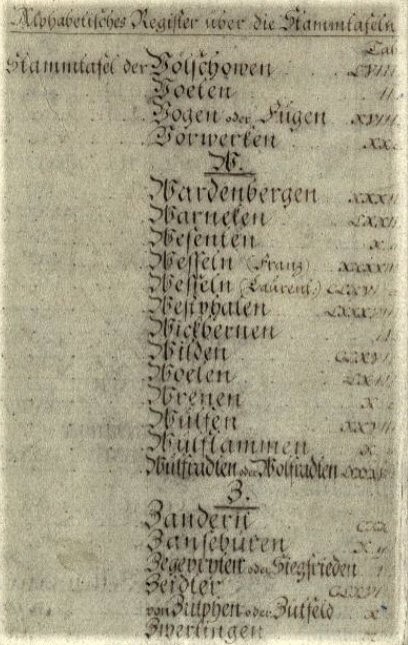 Alphabetisches Register über die Stammtafeln
Tab
Stammtafel der Volschowen LVIII
Voeten II
Vogen oder Fügen XVIII
Vorwerken XX
W.
Wardenbergen XXXI
Warneken LXXI
Wesenten X
Wesseln (Franz) XXXXII
Wesseln (Laurent.) CLXVI
Westphalen LXXXIII
Wickbernen
Wilden CLXVI
Woeten LXI
Wrenen X
Wülfen XXVII
Wulflammen X
Wulfradten oder Wolfradten
Z.
Zandern
Zansebüren X
oder Siegfrieden
Zeidler CLXVI
von Zütphen oder Zütfeld X
Zwerlingen